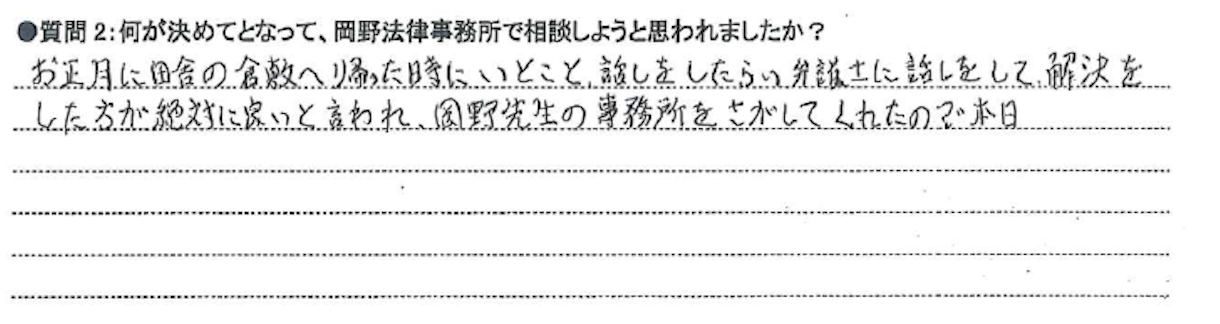 ●質問2:何が決めてとなって、岡野法律事務所で相談しようと思われましたか?
お正月に田舎の倉敷へ帰った時に、いとこと、話しをしたらい弁護士に話しをして、解決を
した方が絶対に良いと言われ、岡野先生の事務所をさがしてくれたので本日